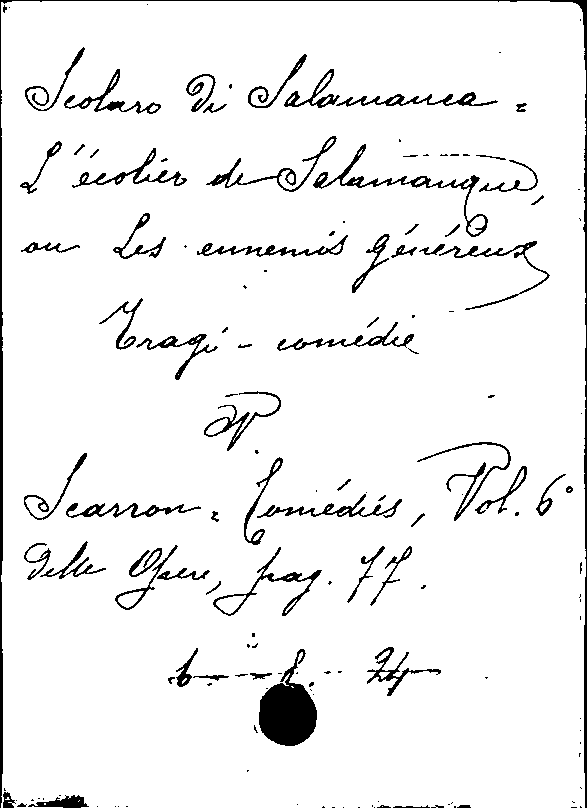 Scolaro di Salamanca =
L'écolier de Salamanque,
ou Les ennemis généreux
Tragi-comédie
P.
Scarron = Comédiés, Vol. 6°
delle Opere, pag. 77.
6. - 8. - 24